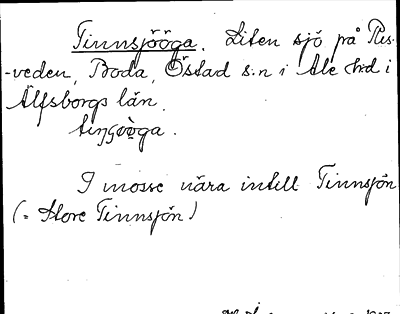 Tinnsjööga. Liten sjö på Ris-
-veden, Boda, Östad s:n i Ale h:d i
Älfsborgs län.
I mosse nära intill Tinnsjön
(= Store Tinnsjön)